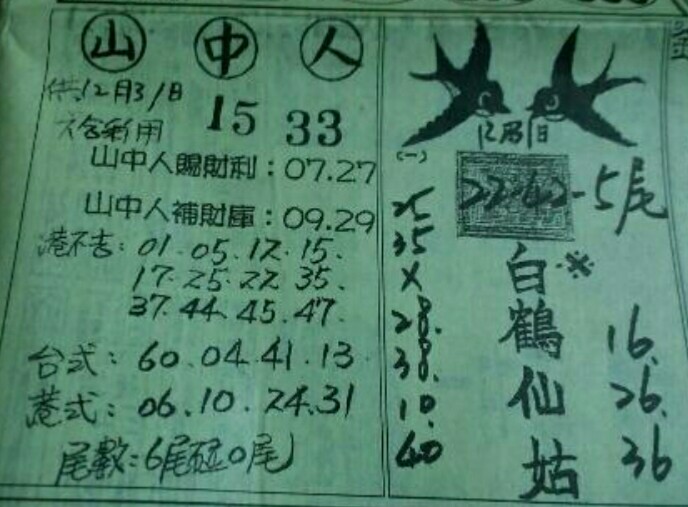 山中人
供12月31日
15 33
六合彩用
山中人賜財利：07.27
山中人補財庫：09.29
港不吉：01.05.12.15.
17.25.22.35.
37.44.45.47.
台式：60.04.41.13
港式：06.10.24.31
尾數：6尾碰0尾
12月31日
(一)
22-42-5尾
25
35
X
28.
38.
10.
40
白鶴仙姑
※
16.
26.
36